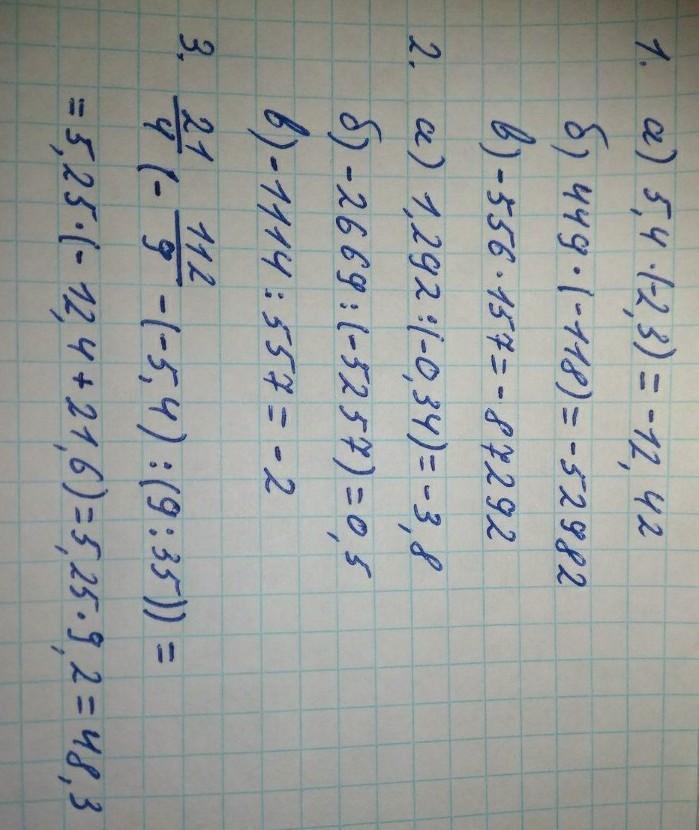 1. а) 5,4·(-2,3)=-12,42
б) 449·(-118)=-52982
в) -556·157=-87292
2. а) 1,292:(-0,34)=-3,8
б) -2669:(-5257)=0,5
в) -1114:557=-2
3. 21/4 (-112/9 -(-5,4):(9:35))=
=5,25·(-12,4+21,6)=5,25·9,2=48,3